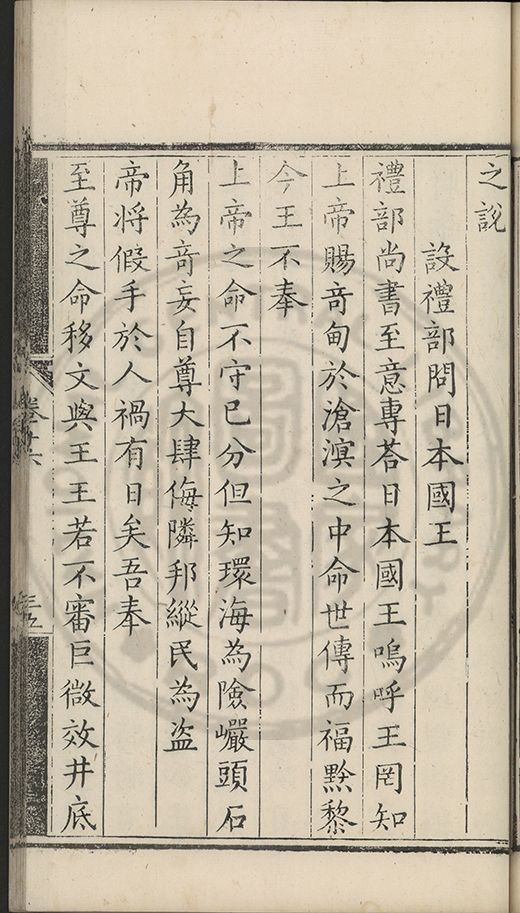 之說
設禮部問日本國王
禮部尚書至意專荅日本國王嗚呼王罔知
上帝賜竒甸於滄溟之中命世傳而福黔黎
今王不奉
上帝之命不守已分但知環海為險巗頭石
角為竒妄自尊大肆侮隣邦縱民為盗
帝將假手於人禍有日矣吾奉
至尊之命移文與王王若不審巨微效井底